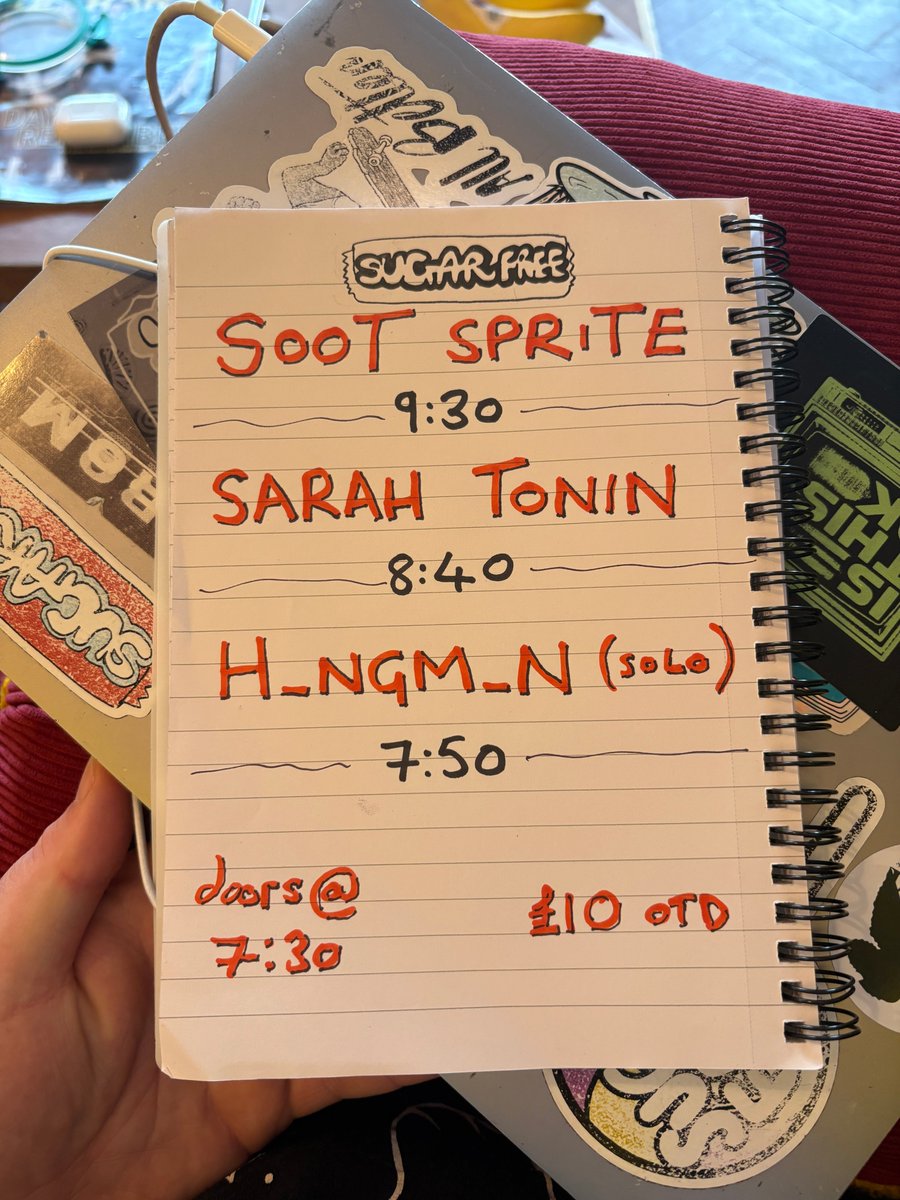 SUGAR FREE
SOOT SPRITE
9:30
SARAH TONIN
8:40
H_NGM_N (SOLO)
7:50
doors@
7:30
£10 OTD
SUGAR
IS
THIS